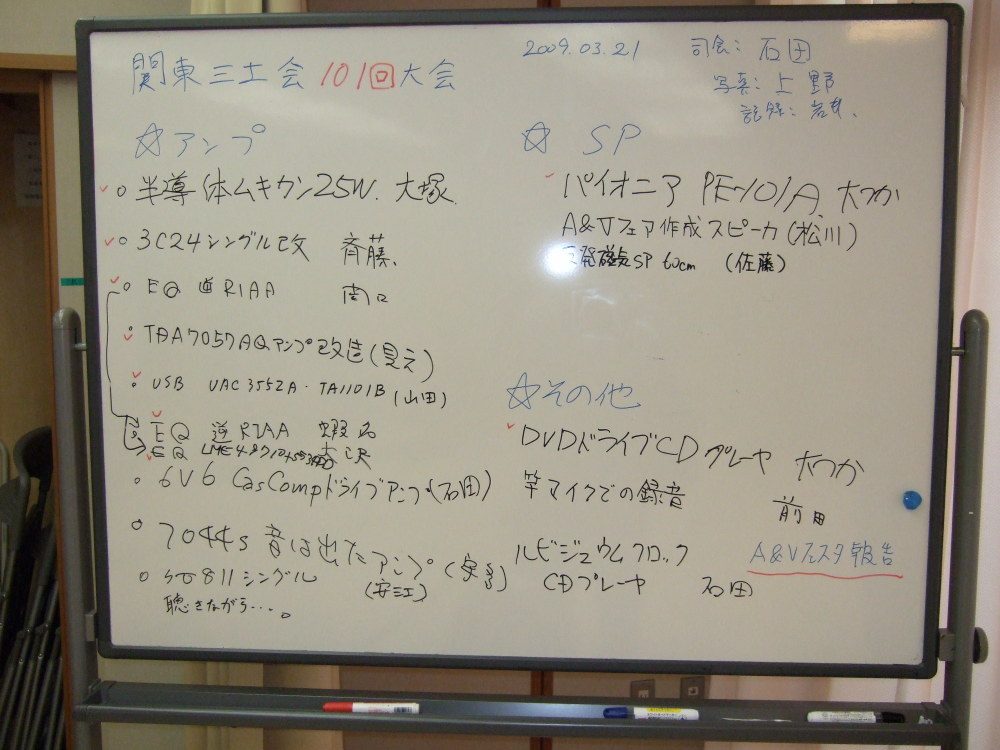 関東三土会 101回大会
2009.03.21
司会: 石田
写真: 上野
記録:
☆アンプ
半導体ムキカン25W. 大塚.
3C24シングル改 斉藤.
EQ 逆RIAA 関口
TDA7057AQアンプ改造(見え)
USB UAC3552A・TA1101B (山田)
EQ 逆RIAA 蝦名
EQ
6V6 CasCompドライブアンプ(石田)
7044s 音は出たアンプ
811シングル (安江)
聴きながら・・・。
☆ SP
パイオニア PE-101A. 大つか
A&Vフェア作成スピーカ(松川)
反発磁気SP 60cm (佐藤)
☆その他
DVDドライブCDプレーヤ 大つか
竿マイクでの録音 前田
ルビジュウムクロック
CDプレーヤ 石田
A&Vフェスタ報告